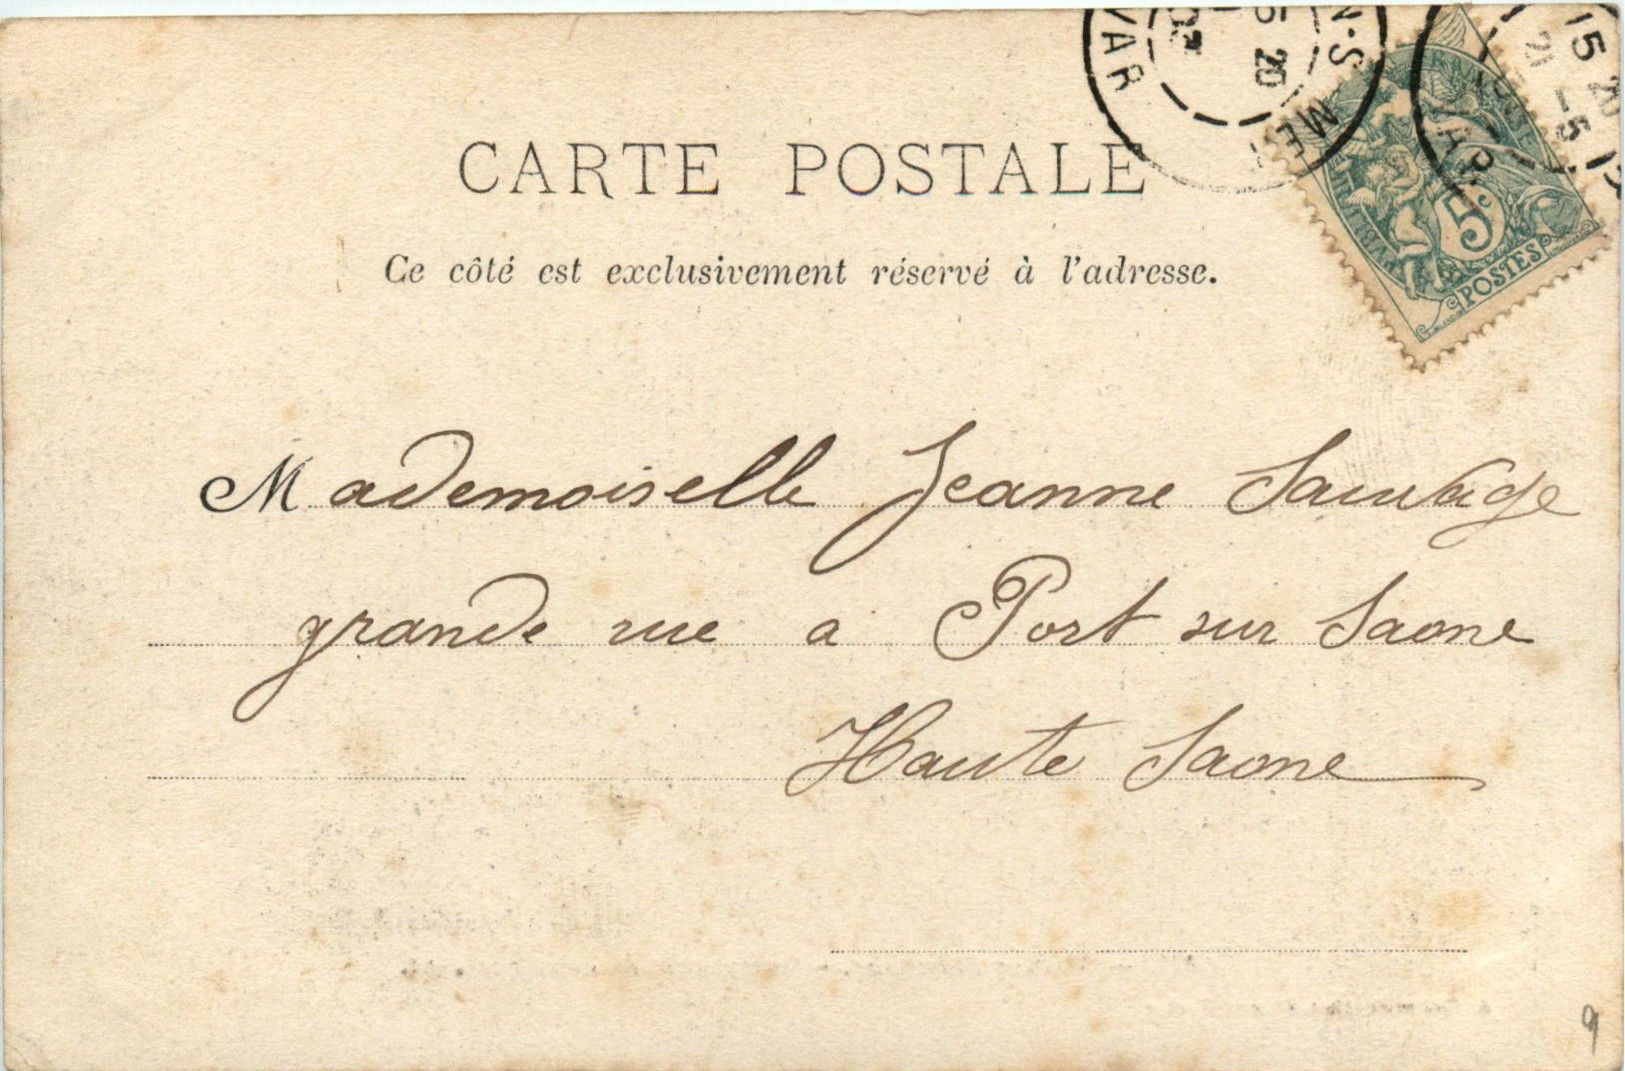 CARTE POSTALE
Ce côté est exclusivement réservé à l'adresse.
Mademoiselle Jeanne Sauvage
grande rue a Port sur Saone
Haute Saone
5c
POSTES
VAR
N-S-ME
5 20
15 20
21 -5
VAR
9